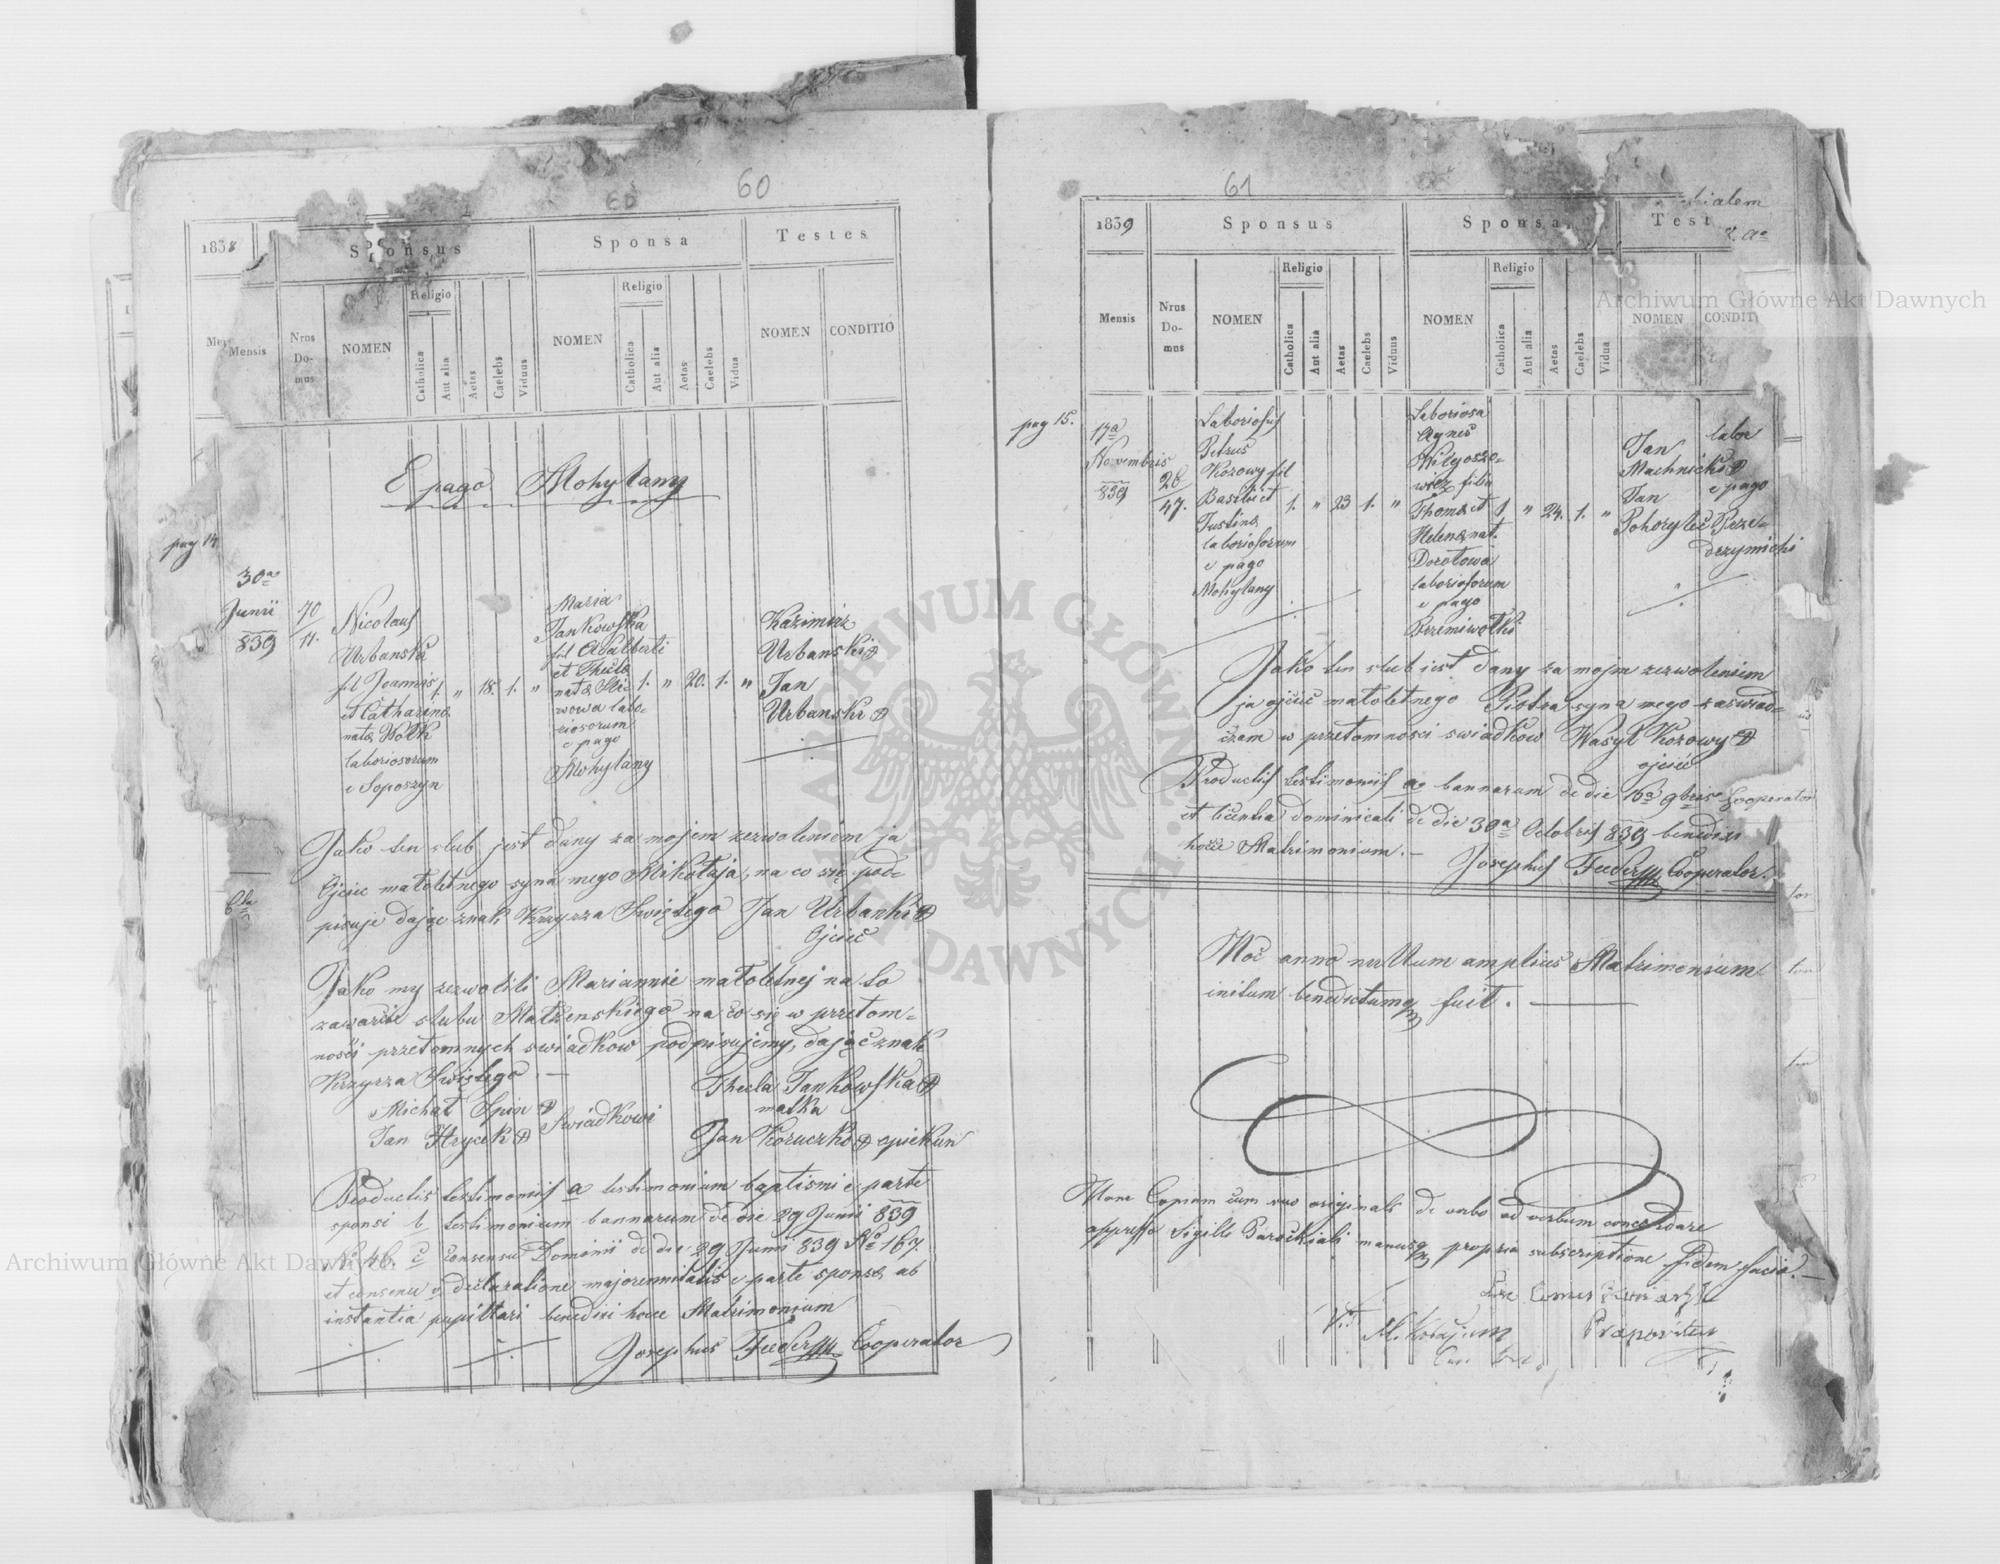 60
1838
Sponsus
Sponsa
Testes
Mensis
Nrus Do-mus
NOMEN
Religio
Catholica
Aut alia
Aetas
Caelebs
Viduus
NOMEN
Religio
Catholica
Aut alia
Aetas
Caelebs
Vidua
NOMEN
CONDITIO
E pago Mohylany
pag 14
30a
Junii
839
70
11.
Nicolaus
Urbanski
fil Joannis
et Catharina
nata Wolk
laboriosorum
e Soposzyn
1. " 18. 1. "
Maria
Jankowska
fil Adalberti
et Thecla
nata
wowa labo-
riosorum
e pago
Mohylany
1. " 20. 1. "
Kazimirz
Urbanski
Jan
Urbanski
Jako ten slub jest dany za mojem zezwoleniem ja
Ojciec małoletnego syna mego Mikołaja, na co się pod-
pisuje dając znak Krzyrza Swiętego Jan Urbanki
Ojciec
Jako my zezwolili Mariannie małoletnej na to
zawarcie slubu Małżenskiego na co się w przetom-
nosci przetomnych swiadkow podpisujemy, dając znak
Krzyrza Swiętego. —
Thecla Jankowska
matka
Michał Spin
Jan Hrycek
Swiadkowi
Jan Koruczko opiekun
Productis testimoniis a testimonium baptismi e parte
sponsi b testimonium bannarum de die 29 Junii 839
No 46. c consensu Dominii de die 29 Junii 839 No 167.
et consensu declaratione majorennitatis e parte sponsa ab
instantia pupillari benedixi hocce Matrimonium
Josephus Feeder Cooperator
61
1839
Sponsus
Sponsa
Test
Mensis
Nrus Do-mus
NOMEN
Religio
Catholica
Aut alia
Aetas
Caelebs
Viduus
NOMEN
Religio
Catholica
Aut alia
Aetas
Caelebs
Vidua
NOMEN
CONDITI
pag 15.
17a
Novembris
839
26
47.
Laboriosus
Petrus
Kozowy fil
Basilii et
Justina
laboriosorum
e pago
Mohylany
1. " 23 1. "
Laboriosa
Agnes
Wilgoszo-
wicz filia
Thoma et
Helena nat.
Dorotowa
laboriosorum
e pago
Przemiwolki
1 " 24. 1. "
Jan
Machnicki
Jan
Pohorylec
labor
e pago
Prze-
drzymichi
Jako ten slub jest dany za mojm zezwoleniem
ja ojciec małoletnego Piotra syna mego zaswiad-
czam w przetomnosci swiadkow Wasyl Kozowy
ojciec
Productis testimoniis a bannarum de die 16a 9bris Cooperator
et licentia dominicali de die 30a Octobris 839 benedixi
hocce Matrimonium. —
Josephus Feeder Cooperator.
Hoc anno nullum amplius Matrimonium
initum benedictumq fuit. —
Hanc Copiam cum suo originali de verbo ad verbum concordare
appresso Sigillo Parochiali manuq propria subscriptione fidem facio. —
Praepositus
Archiwum Główne Akt Dawnych
Archiwum Główne Akt Dawnych
ARCHIWUM GŁÓWNE AKT DAWNYCH